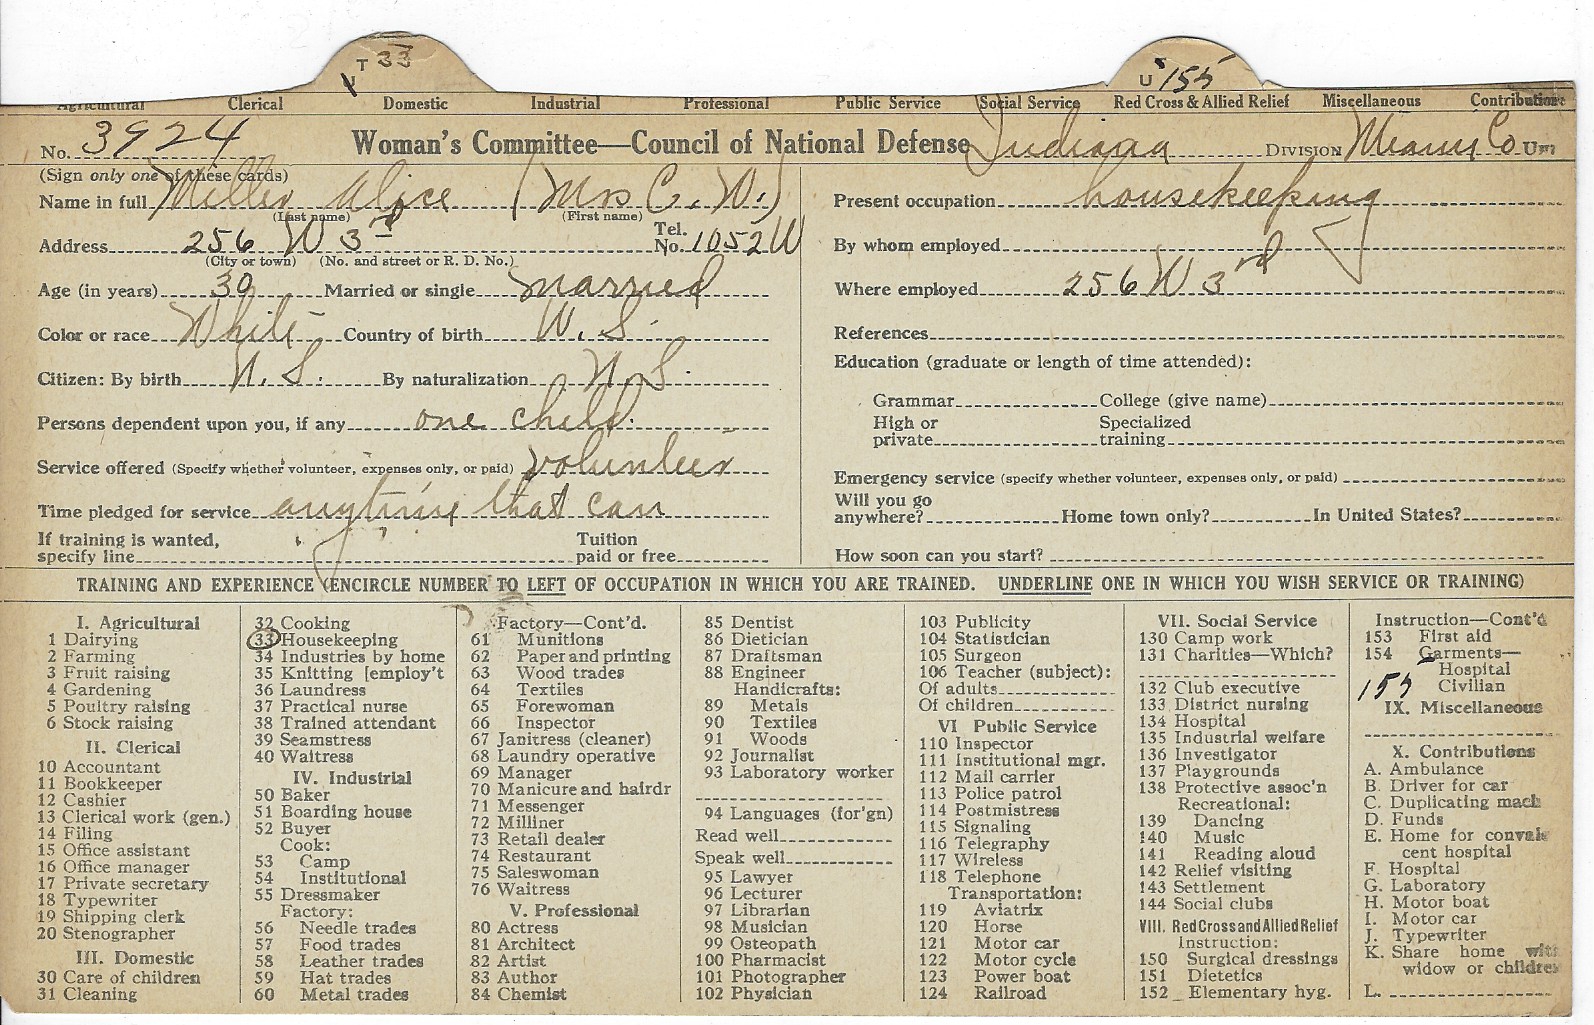 T 33
U 155
Agricultural Clerical Domestic Industrial Professional Public Service Social Service Red Cross & Allied Relief Miscellaneous Contributions
No. 3924 Woman's Committee—Council of National Defense Indiana DIVISION Miami Co
(Sign only one of these cards)
Name in full Miller Alice (Mrs C. W.)
(Last name) (First name)
Address 256 W 3rd Tel. No. 1052W
(City or town) (No. and street or R. D. No.)
Age (in years) 39 Married or single married
Color or race White Country of birth U. S.
Citizen: By birth U. S. By naturalization U. S.
Persons dependent upon you, if any one child.
Service offered (Specify whether volunteer, expenses only, or paid) volunteer
Time pledged for service anytime that can
If training is wanted, specify line Tuition paid or free
Present occupation housekeeping
By whom employed
Where employed 256 W 3rd
References
Education (graduate or length of time attended):
Grammar College (give name)
High or private Specialized training
Emergency service (specify whether volunteer, expenses only, or paid)
Will you go anywhere? Home town only? In United States?
How soon can you start?
TRAINING AND EXPERIENCE (ENCIRCLE NUMBER TO LEFT OF OCCUPATION IN WHICH YOU ARE TRAINED. UNDERLINE ONE IN WHICH YOU WISH SERVICE OR TRAINING)
I. Agricultural
1 Dairying
2 Farming
3 Fruit raising
4 Gardening
5 Poultry raising
6 Stock raising
II. Clerical
10 Accountant
11 Bookkeeper
12 Cashier
13 Clerical work (gen.)
14 Filing
15 Office assistant
16 Office manager
17 Private secretary
18 Typewriter
19 Shipping clerk
20 Stenographer
III. Domestic
30 Care of children
31 Cleaning
32 Cooking
33 Housekeeping
34 Industries by home
35 Knitting [employ't
36 Laundress
37 Practical nurse
38 Trained attendant
39 Seamstress
40 Waitress
IV. Industrial
50 Baker
51 Boarding house
52 Buyer
Cook:
53 Camp
54 Institutional
55 Dressmaker
Factory:
56 Needle trades
57 Food trades
58 Leather trades
59 Hat trades
60 Metal trades
Factory—Cont'd.
61 Munitions
62 Paper and printing
63 Wood trades
64 Textiles
65 Forewoman
66 Inspector
67 Janitress (cleaner)
68 Laundry operative
69 Manager
70 Manicure and hairdr
71 Messenger
72 Milliner
73 Retail dealer
74 Restaurant
75 Saleswoman
76 Waitress
V. Professional
80 Actress
81 Architect
82 Artist
83 Author
84 Chemist
85 Dentist
86 Dietician
87 Draftsman
88 Engineer
Handicrafts:
89 Metals
90 Textiles
91 Woods
92 Journalist
93 Laboratory worker
94 Languages (for'gn)
Read well
Speak well
95 Lawyer
96 Lecturer
97 Librarian
98 Musician
99 Osteopath
100 Pharmacist
101 Photographer
102 Physician
103 Publicity
104 Statistician
105 Surgeon
106 Teacher (subject):
Of adults
Of children
VI Public Service
110 Inspector
111 Institutional mgr.
112 Mail carrier
113 Police patrol
114 Postmistress
115 Signaling
116 Telegraphy
117 Wireless
118 Telephone
Transportation:
119 Aviatrix
120 Horse
121 Motor car
122 Motor cycle
123 Power boat
124 Railroad
VII. Social Service
130 Camp work
131 Charities—Which?
132 Club executive
133 District nursing
134 Hospital
135 Industrial welfare
136 Investigator
137 Playgrounds
138 Protective assoc'n
Recreational:
139 Dancing
140 Music
141 Reading aloud
142 Relief visiting
143 Settlement
144 Social clubs
VIII. Red Cross and Allied Relief
Instruction:
150 Surgical dressings
151 Dietetics
152 Elementary hyg.
Instruction—Cont'd
153 First aid
154 Garments—
Hospital
155 Civilian
IX. Miscellaneous
X. Contributions
A. Ambulance
B. Driver for car
C. Duplicating mach
D. Funds
E. Home for convales
cent hospital
F. Hospital
G. Laboratory
H. Motor boat
I. Motor car
J. Typewriter
K. Share home with
widow or children
L.